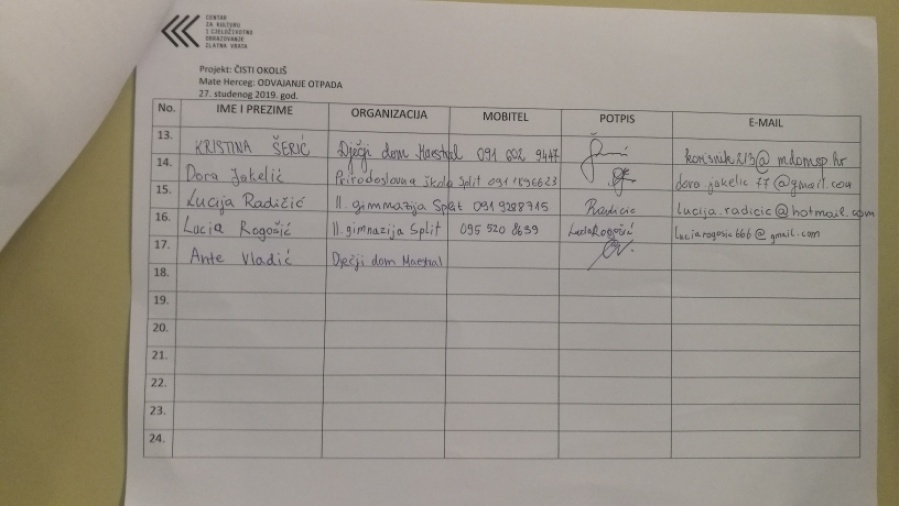 CENTAR
ZA KULTURU
I CJELOŽIVOTNO
OBRAZOVANJE
ZLATNA VRATA
Projekt: ČISTI OKOLIŠ
Mate Herceg: ODVAJANJE OTPADA
27. studenog 2019. god.
No. IME I PREZIME ORGANIZACIJA MOBITEL POTPIS E-MAIL
13. KRISTINA ŠERIĆ Dječji dom Maestral 091 602 9447 korisnik213@mdomsp.hr
14. Dora Jakelić Prirodoslovna škola Split 091 1896623 dora.jakelic.77@gmail.com
15. Lucija Radičić II. gimnazija Split 091 9288715 Radičić lucija.radicic@hotmail.com
16. Lucia Rogošić II. gimnazija Split 095 520 8659 Lucia Rogošić luciarogosic666@gmail.com
17. Ante Vladić Dječji dom Maestral
18.
19.
20.
21.
22.
23.
24.